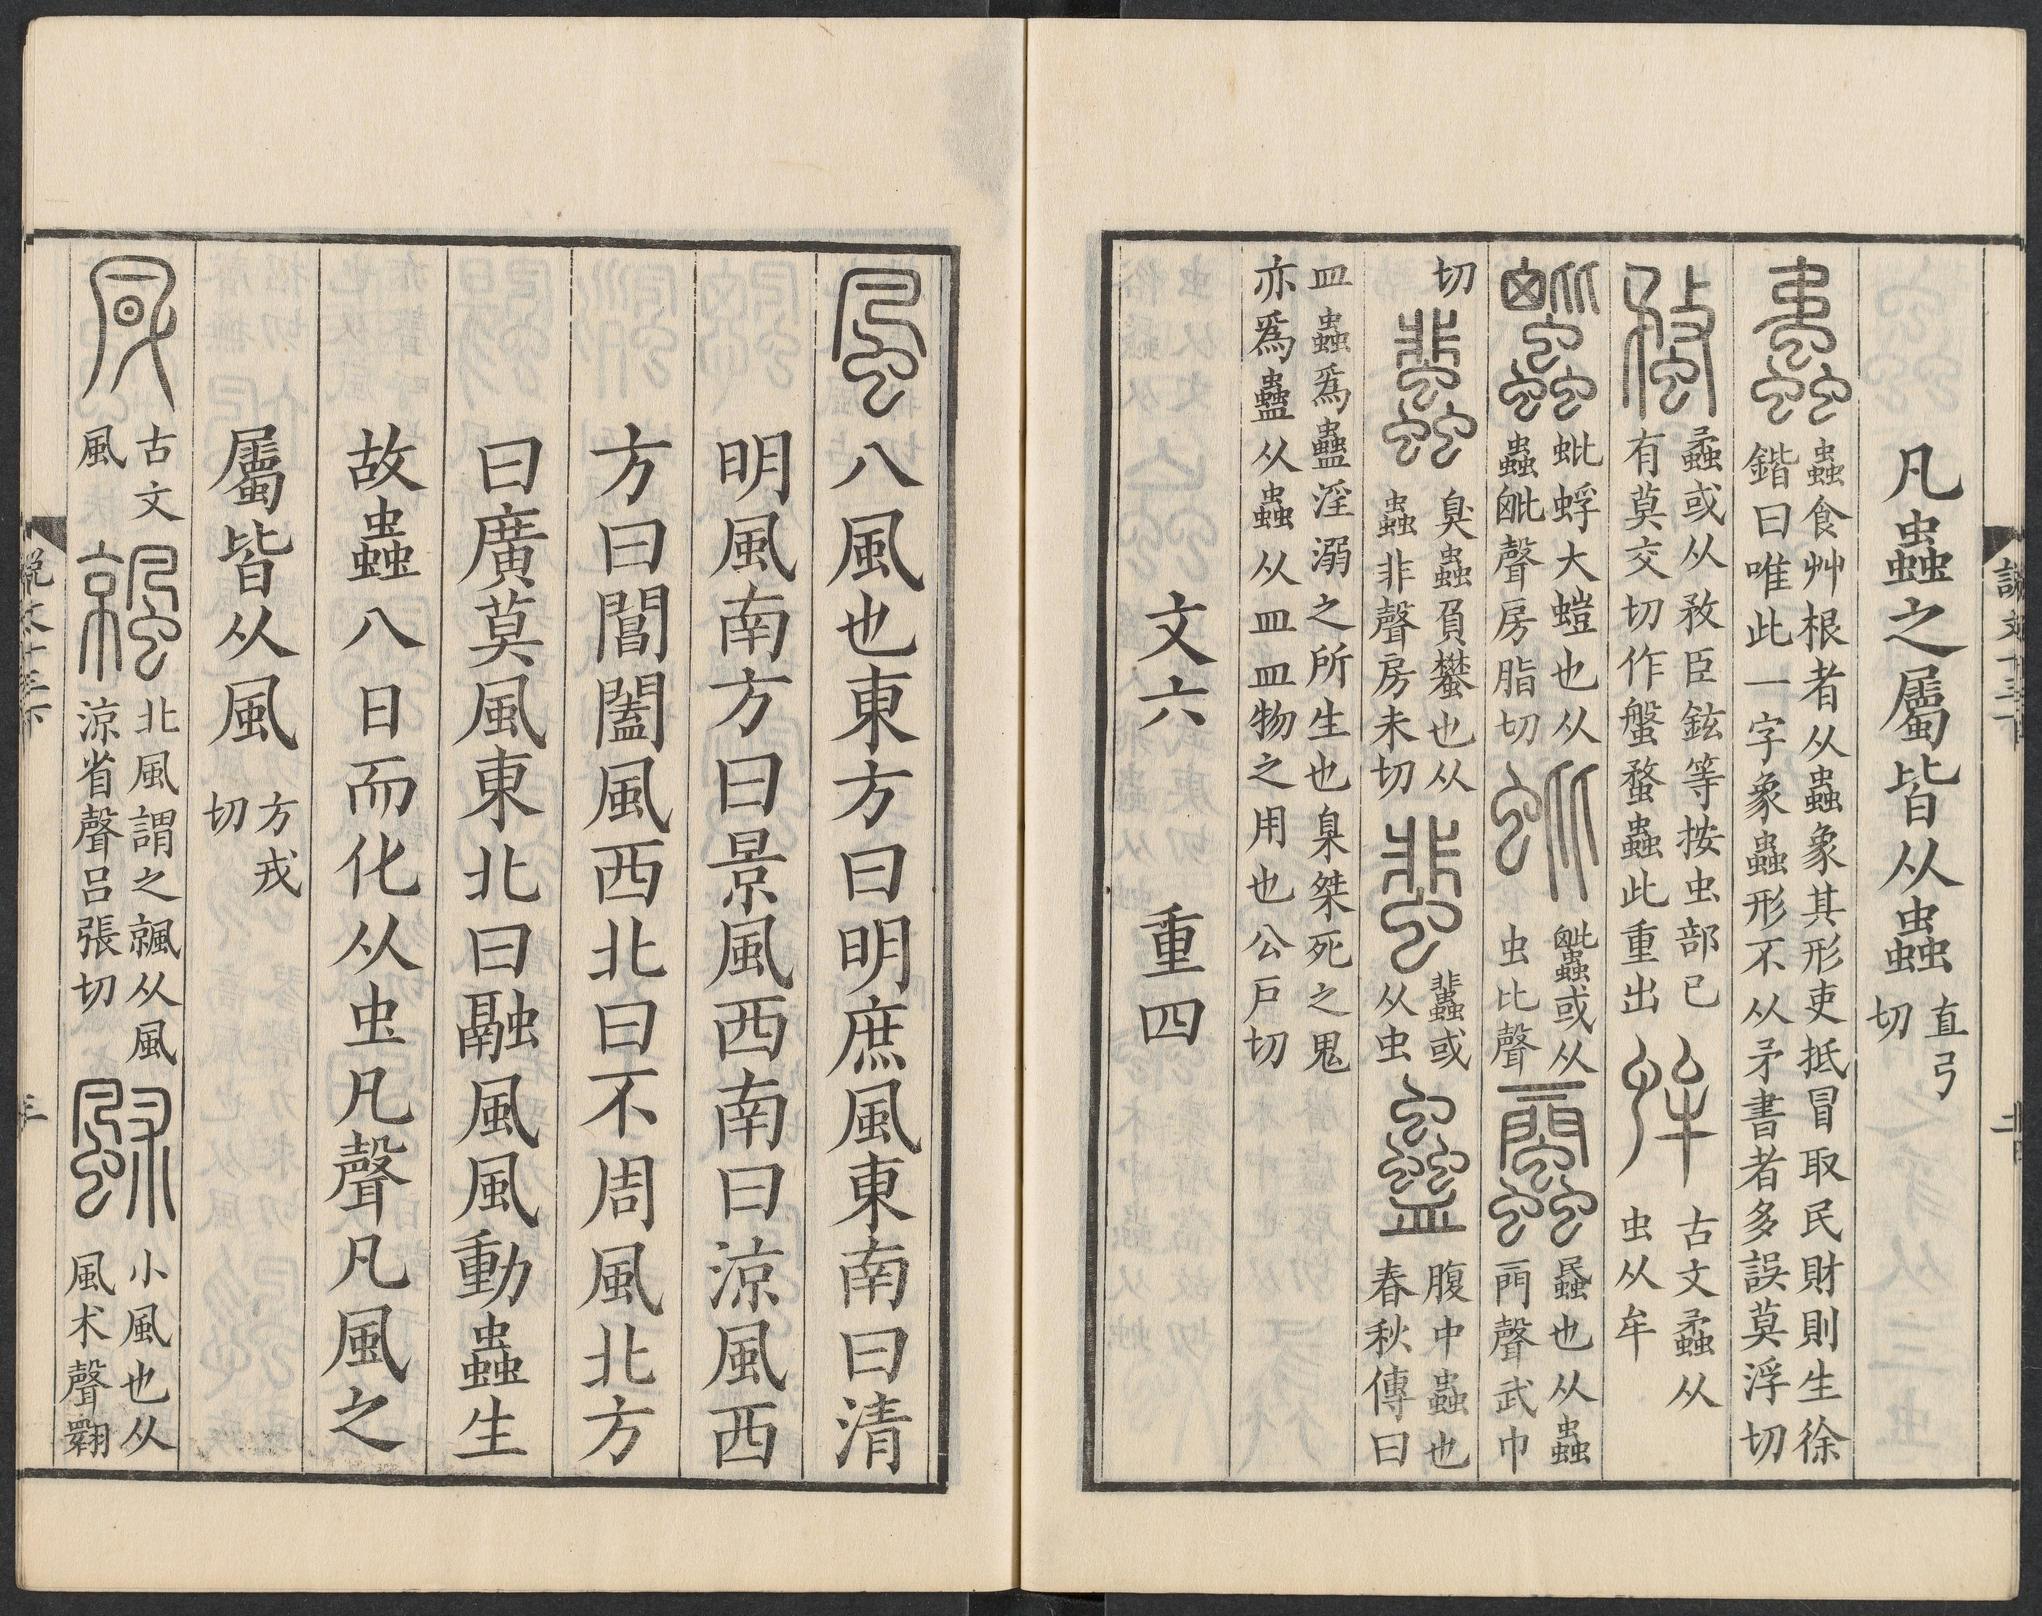 凡蟲之屬皆从蟲直弓切
蟊蟲食艸根者从蟲象其形吏抵冒取民財則生徐鍇曰唯此一字象蟲形不从矛書者多誤莫浮切
蝥蟊或从敄臣鉉等按虫部已有莫交切作螌蝥蟲此重出蛑古文蟊从虫从牟
𧓎蚍蜉大螘也从蟲𣬉聲房脂切蚍𧓎或从虫比聲也从蟲聲武巾
切𧕿臭蟲負蠜也从蟲非聲房未切蜚𧕿或从虫蠱腹中蟲也春秋傳曰
皿蟲爲蠱淫溺之所生也臬桀死之鬼亦爲蠱从蟲从皿皿物之用也公戶切
文六 重四
說文十三下
風八風也東方曰明庶風東南曰清
明風南方曰景風西南曰涼風西
方曰閶闔風西北曰不周風北方
曰廣莫風東北曰融風風動蟲生
故蟲八日而化从虫凡聲凡風之
屬皆从風方戎切
古文風飆北風謂之飆从風涼省聲呂張切䬂小風也从風术聲翾
說文十三下
三